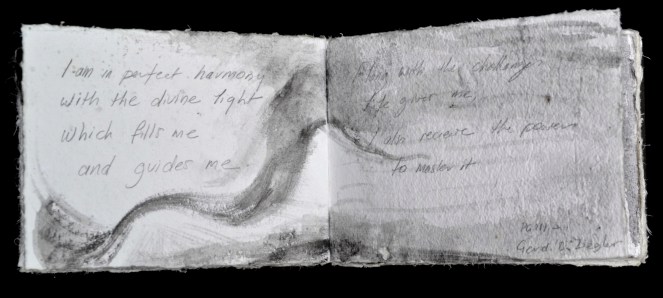 I am in perfect harmony
with the divine light
which fills me
and guides me.
Along with the challenge
life gives me,
I also receive the powers
to master it
Gerdi